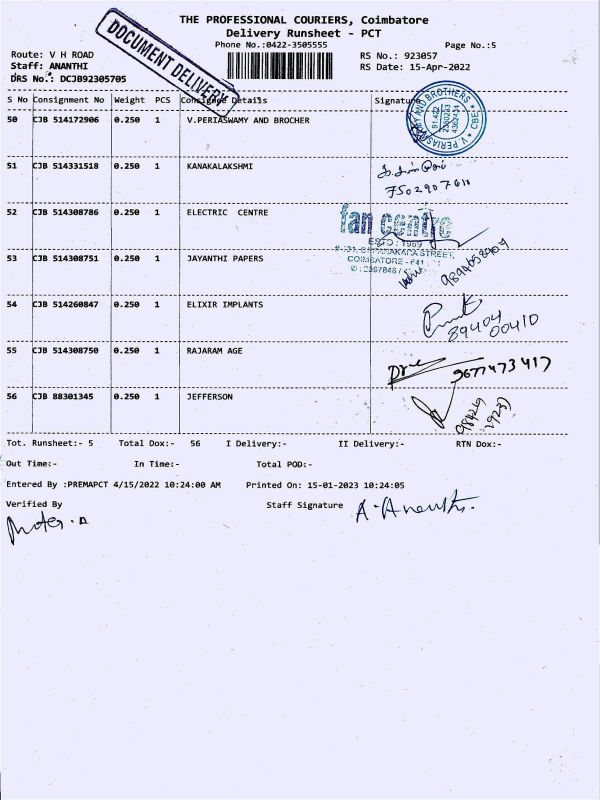 THE PROFESSIONAL COURIERS, Coimbatore
Delivery Runsheet - PCT
Phone No.:0422-3505555
Page No.:5
DOCUMENT DELIVERY
Route: V H ROAD
RS No.: 923057
Staff: ANANTHI
RS Date: 15-Apr-2022
DRS No.: DCJB92305705
S No Consignment No Weight PCS Consignee Details Signature
50 CJB 514172906 0.250 1 V.PERIASWAMY AND BROCHER
V. PERIASWAMY AND BROTHERS * CBE
51 CJB 514331518 0.250 1 KANAKALAKSHMI
7502907610
52 CJB 514308786 0.250 1 ELECTRIC CENTRE
fan centre
ESTD : 1969
STREET,
COIMBATORE - 641
53 CJB 514308751 0.250 1 JAYANTHI PAPERS
54 CJB 514260847 0.250 1 ELIXIR IMPLANTS
89404
00410
55 CJB 514308750 0.250 1 RAJARAM AGE
9677473417
56 CJB 88301345 0.250 1 JEFFERSON
Tot. Runsheet:- 5 Total Dox:- 56 I Delivery:- II Delivery:- RTN Dox:-
Out Time:- In Time:- Total POD:-
Entered By :PREMAPCT 4/15/2022 10:24:00 AM Printed On: 15-01-2023 10:24:05
Verified By Staff Signature
A. Ananthi.